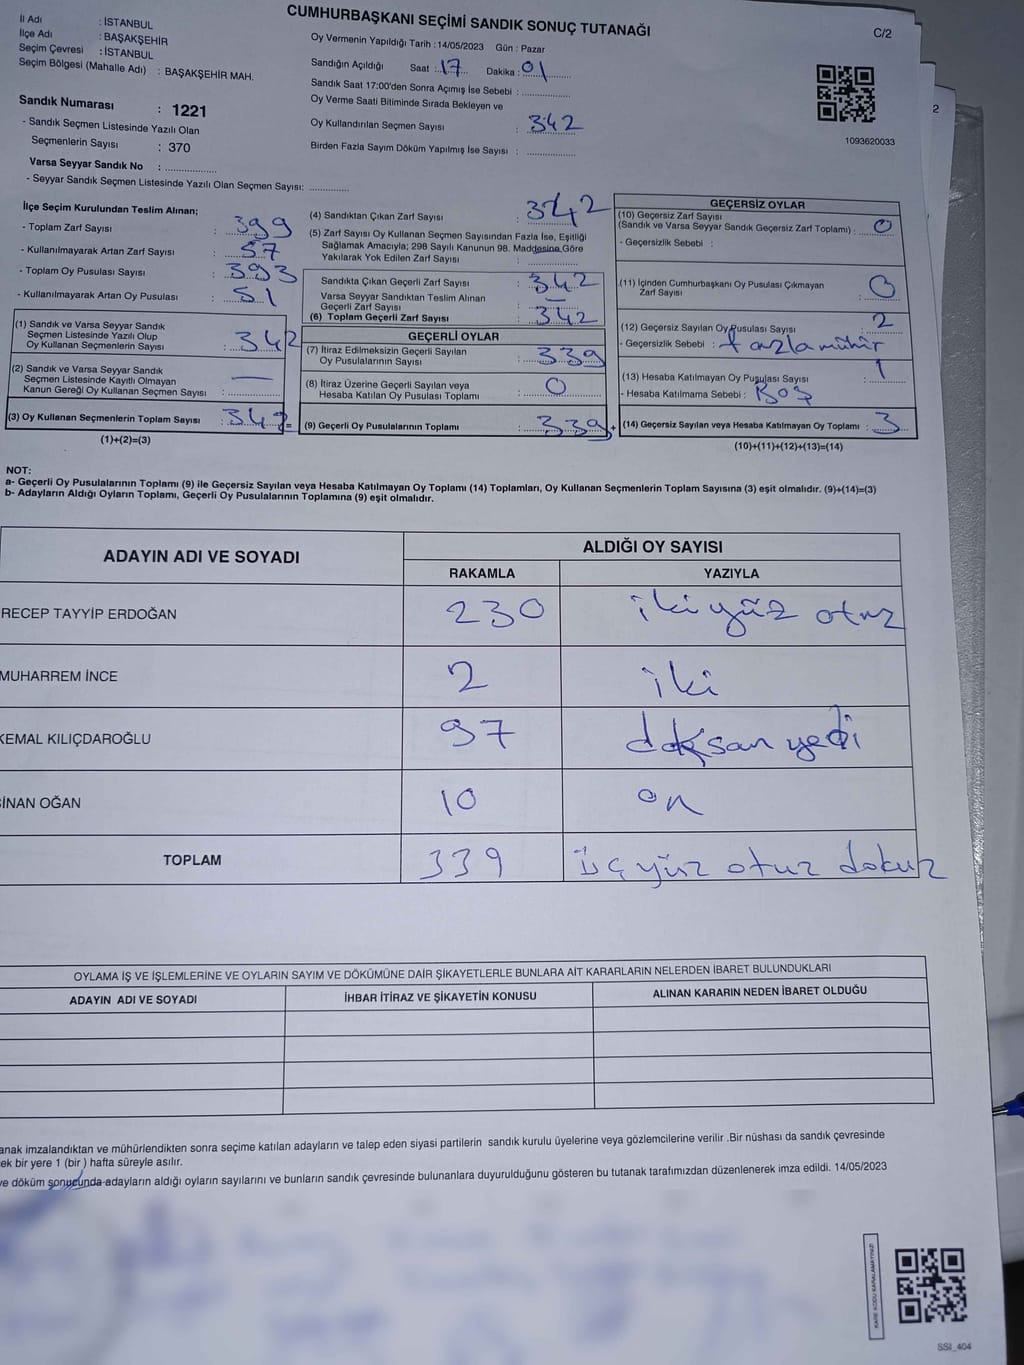 CUMHURBAŞKANI SEÇİMİ SANDIK SONUÇ TUTANAĞI
C/2
İl Adı : İSTANBUL
İlçe Adı : BAŞAKŞEHİR
Seçim Çevresi : İSTANBUL
Seçim Bölgesi (Mahalle Adı) : BAŞAKŞEHİR MAH.
Sandık Numarası : 1221
- Sandık Seçmen Listesinde Yazılı Olan
Seçmenlerin Sayısı : 370
Varsa Seyyar Sandık No : ..................
- Seyyar Sandık Seçmen Listesinde Yazılı Olan Seçmen Sayısı: ..............
Oy Vermenin Yapıldığı Tarih :14/05/2023 Gün : Pazar
Sandığın Açıldığı Saat : 17 Dakika : 01
Sandık Saat 17:00'den Sonra Açımış İse Sebebi : ..................
Oy Verme Saati Bitiminde Sırada Bekleyen ve
Oy Kullandırılan Seçmen Sayısı : 342
Birden Fazla Sayım Döküm Yapılmış İse Sayısı : ..................
1093620033
2
İlçe Seçim Kurulundan Teslim Alınan;
- Toplam Zarf Sayısı : 399
- Kullanılmayarak Artan Zarf Sayısı : 57
- Toplam Oy Pusulası Sayısı : 393
- Kullanılmayarak Artan Oy Pusulası : 51
(1) Sandık ve Varsa Seyyar Sandık
Seçmen Listesinde Yazılı Olup
Oy Kullanan Seçmenlerin Sayısı : 342
(2) Sandık ve Varsa Seyyar Sandık
Seçmen Listesinde Kayıtlı Olmayan
Kanun Gereği Oy Kullanan Seçmen Sayısı : —
(3) Oy Kullanan Seçmenlerin Toplam Sayısı : 342 =
(1)+(2)=(3)
(4) Sandıktan Çıkan Zarf Sayısı : 342
(5) Zarf Sayısı Oy Kullanan Seçmen Sayısından Fazla İse, Eşitliği
Sağlamak Amacıyla; 298 Sayılı Kanunun 98. Maddesine Göre
Yakılarak Yok Edilen Zarf Sayısı : ..................
Sandıkta Çıkan Geçerli Zarf Sayısı : 342
Varsa Seyyar Sandıktan Teslim Alınan
Geçerli Zarf Sayısı : —
(6) Toplam Geçerli Zarf Sayısı : 342
GEÇERLİ OYLAR
(7) İtiraz Edilmeksizin Geçerli Sayılan
Oy Pusulalarının Sayısı : 339
(8) İtiraz Üzerine Geçerli Sayılan veya
Hesaba Katılan Oy Pusulası Toplamı : 0
(9) Geçerli Oy Pusulalarının Toplamı : 339 +
GEÇERSİZ OYLAR
(10) Geçersiz Zarf Sayısı
(Sandık ve Varsa Seyyar Sandık Geçersiz Zarf Toplamı) : 0
- Geçersizlik Sebebi :
(11) İçinden Cumhurbaşkanı Oy Pusulası Çıkmayan
Zarf Sayısı : 0
(12) Geçersiz Sayılan Oy Pusulası Sayısı : 2
- Geçersizlik Sebebi : fazla mühür
(13) Hesaba Katılmayan Oy Pusulası Sayısı : 1
- Hesaba Katılmama Sebebi : Boş
(14) Geçersiz Sayılan veya Hesaba Katılmayan Oy Toplamı : 3
(10)+(11)+(12)+(13)=(14)
NOT:
a- Geçerli Oy Pusulalarının Toplamı (9) ile Geçersiz Sayılan veya Hesaba Katılmayan Oy Toplamı (14) Toplamları, Oy Kullanan Seçmenlerin Toplam Sayısına (3) eşit olmalıdır. (9)+(14)=(3)
b- Adayların Aldığı Oyların Toplamı, Geçerli Oy Pusulalarının Toplamına (9) eşit olmalıdır.
ADAYIN ADI VE SOYADI
ALDIĞI OY SAYISI
RAKAMLA YAZIYLA
RECEP TAYYİP ERDOĞAN 230 iki yüz otuz
MUHARREM İNCE 2 iki
KEMAL KILIÇDAROĞLU 97 doksan yedi
SİNAN OĞAN 10 on
TOPLAM 339 üç yüz otuz dokuz
OYLAMA İŞ VE İŞLEMLERİNE VE OYLARIN SAYIM VE DÖKÜMÜNE DAİR ŞİKAYETLERLE BUNLARA AİT KARARLARIN NELERDEN İBARET BULUNDUKLARI
ADAYIN ADI VE SOYADI İHBAR İTİRAZ VE ŞİKAYETİN KONUSU ALINAN KARARIN NEDEN İBARET OLDUĞU
anak imzalandıktan ve mühürlendikten sonra seçime katılan adayların ve talep eden siyasi partilerin sandık kurulu üyelerine veya gözlemcilerine verilir .Bir nüshası da sandık çevresinde
ek bir yere 1 (bir ) hafta süreyle asılır.
ve döküm sonucunda adayların aldığı oyların sayılarını ve bunların sandık çevresinde bulunanlara duyurulduğunu gösteren bu tutanak tarafımızdan düzenlenerek imza edildi. 14/05/2023
KARE KODU KARALAMAYINIZ!
SSI_404